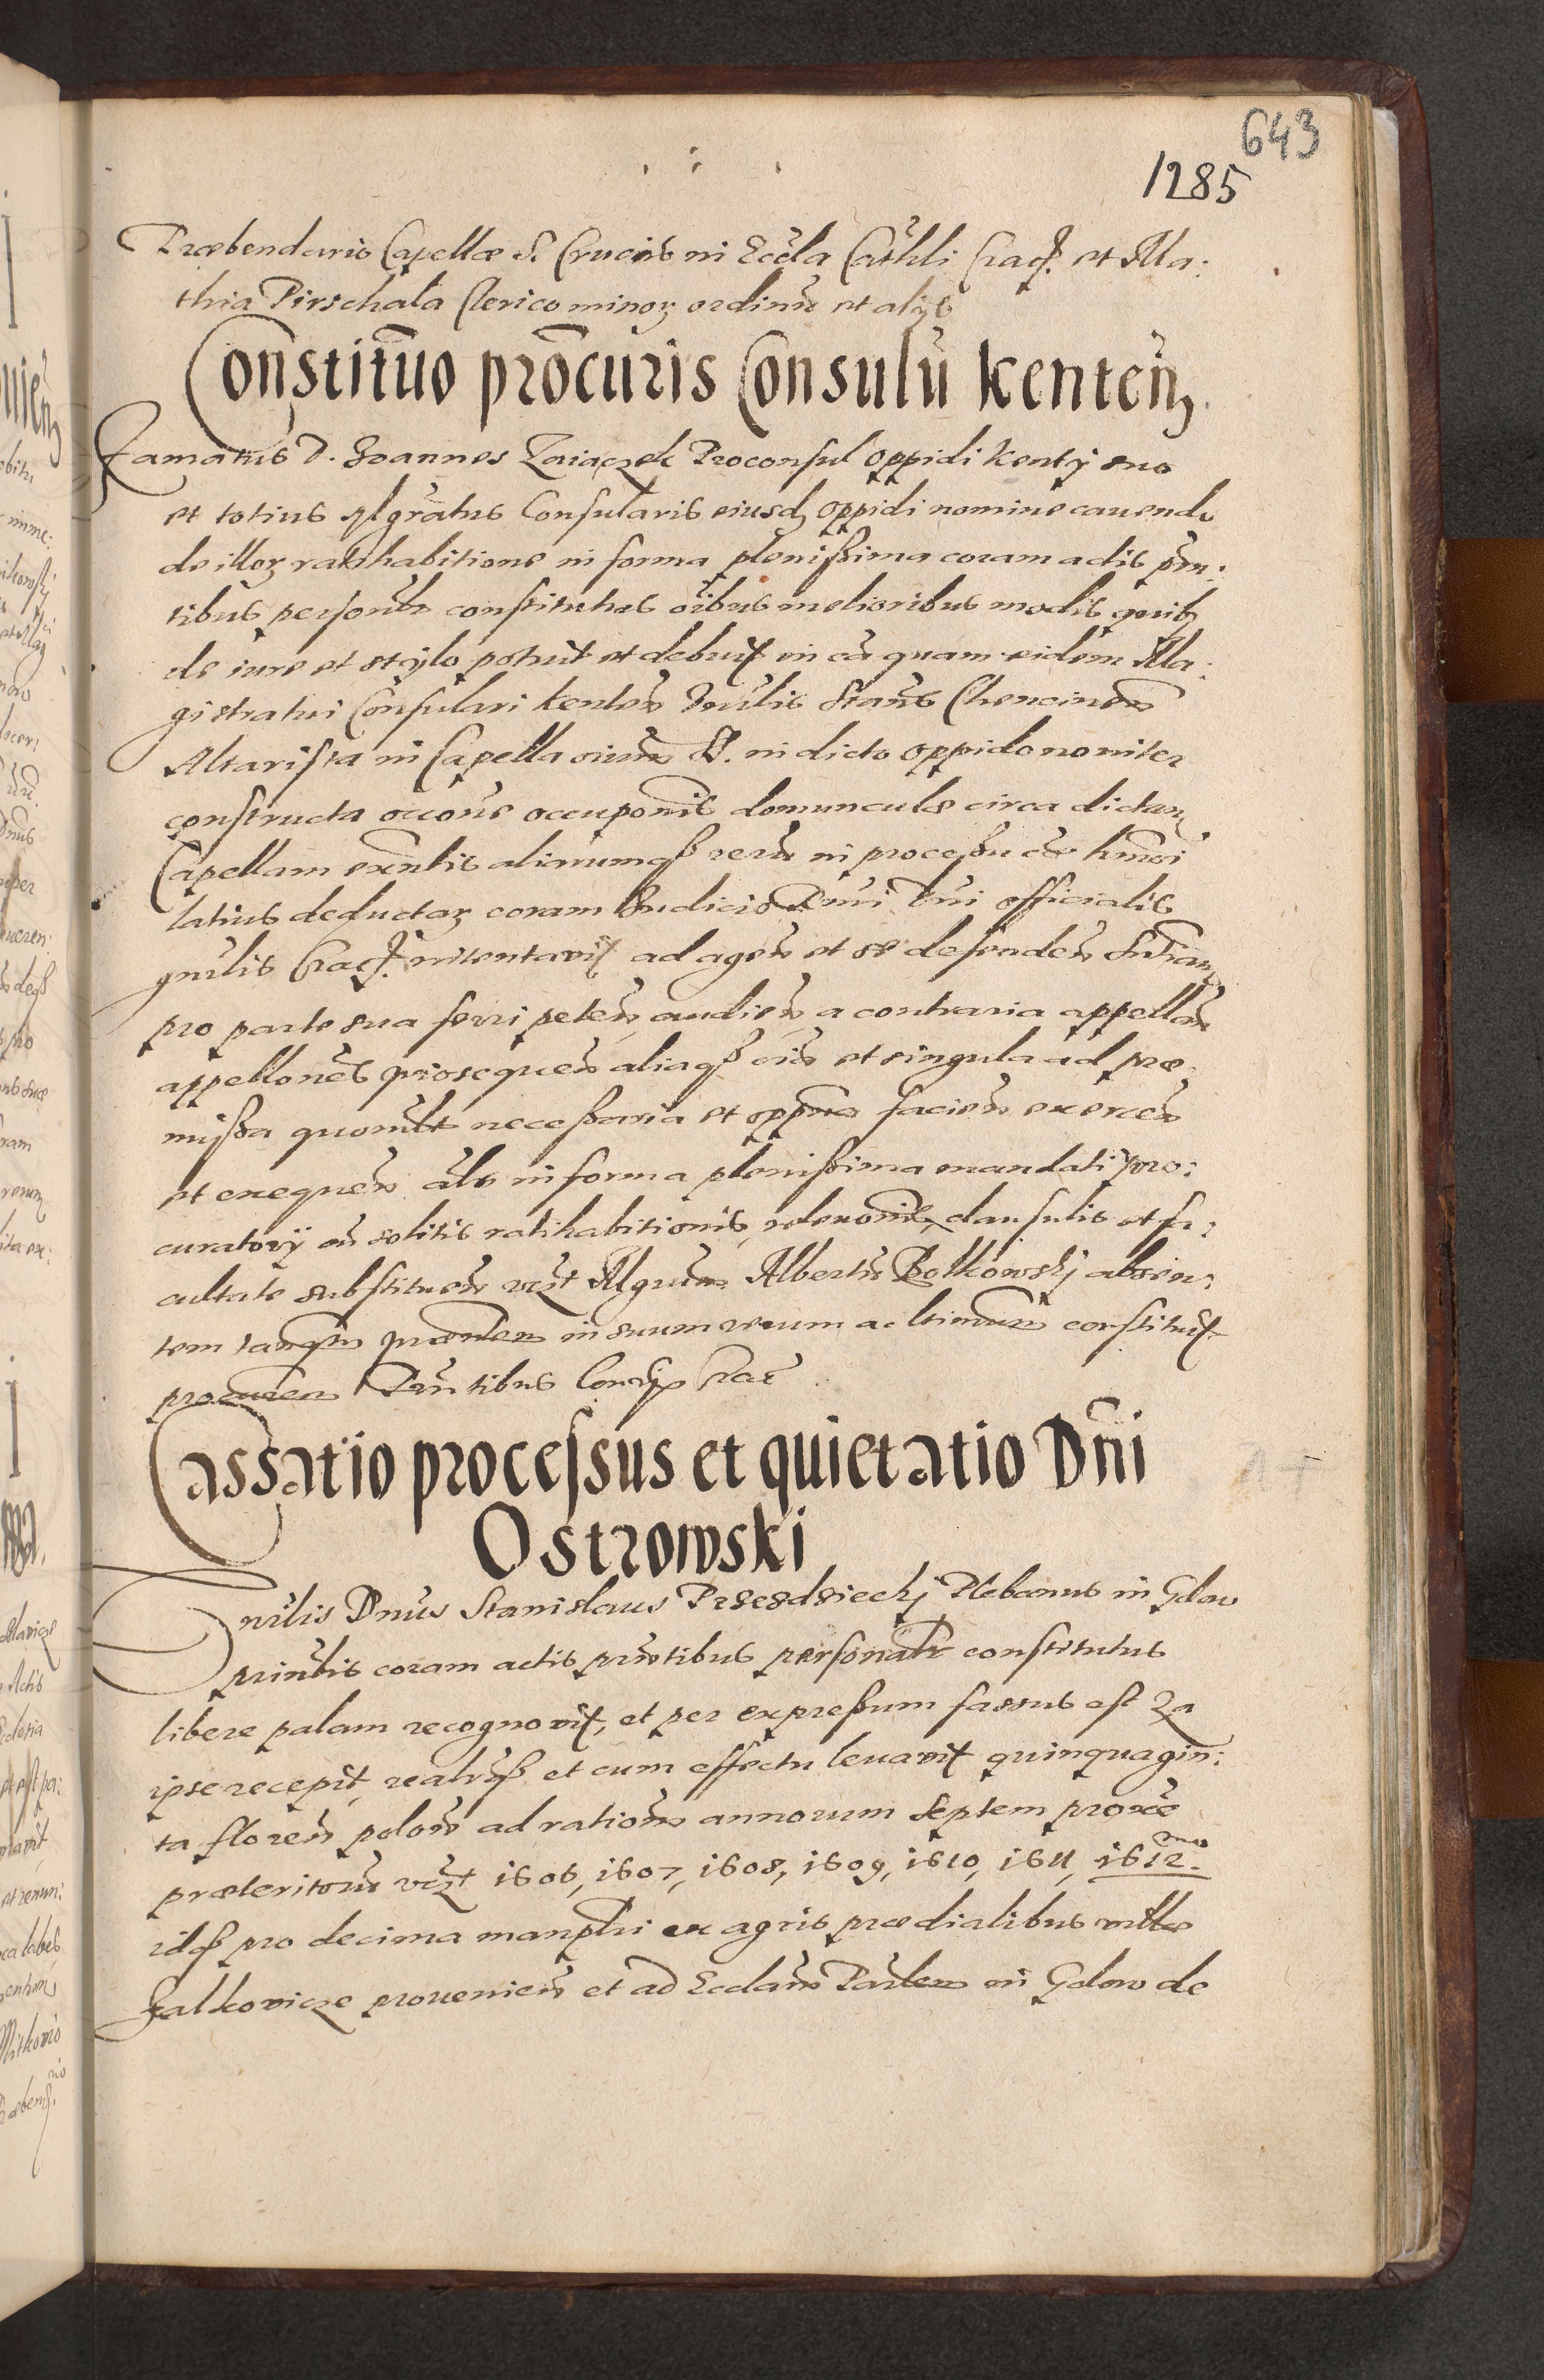 643
1285
Præbendario Capellæ S. Crucis in Eccla Cathli Crac. et Ma:
thia Pirschala Clerico minor ordinu et alijs
Constituo procuris Consulu Kenten
Famatus D. Joannes Zaiaczek Proconsul oppidi Kenty suo
et totius Mgratus Consularis eiusd oppidi nomine cauendo
de illor ratihabitione in forma plenissima coram actis prn:
tibus personlr constitutus oibus melioribus modis quib
de iure et stylo potuit et debuit in ca quam eidem Ma:
gistratui Consulari kenten Snulis Stans Chencinen
Altarista in Capella oium S. in dicto oppido noniter
constructa occone occuponis domunculæ circa dictam
Capellam exntis aliarumq reru in processu cæ hmoi
latius deductar coram Judicio Dni Dni officialis
gnulis Crac. intentavit ad agen et se defenden Sntiam
pro parte sua ferri peten audien a contraria appellan
appellones prosequen aliaq oia et singula ad præ
missa quomlt necessaria et oppna facien exercen
et exequen als in forma plenissima mandati pro:
curatorij cu solitis ratihabitionis, releuonis clausulis et fa:
cultate substituen vczt Mgrum Albertu Bolkowskj absen:
tem tanq præsentem in suum verum ac ltimum constituit
procurem Prntibus Consp Crac
Cassatio processus et quietatio Dni
Ostrowski
Snulis Dnus Stanislaus Przezdzieckj Plebanus in Gdow
principalis coram actis prntibus personalr constitutus
libere palam recognovit, et per expressum fassus est Za
ipse recepit, realrq et cum effectu leuavit quinquagin:
ta floren polon ad ration annorum Septem proxe
præteritoru vczt 1606, 1607, 1608, 1609, 1610, 1611, 1612mo
idq pro decima manpli ex agris prædialibus villæ
Falkovicze prouenien et ad Ecclam Parlem in Gdow de